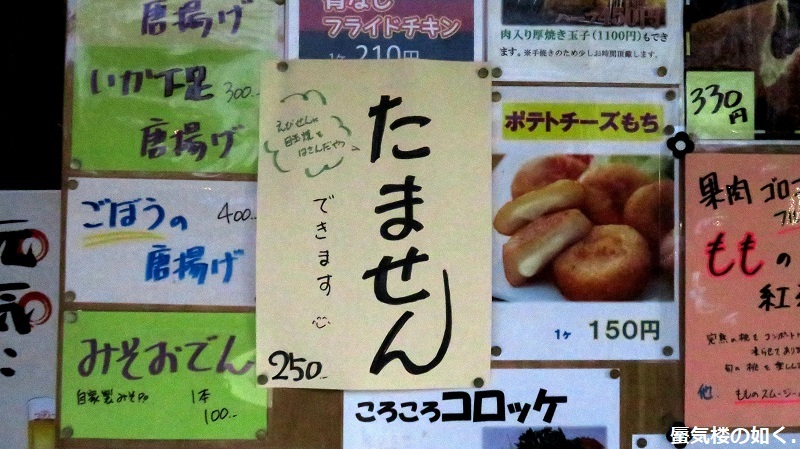 唐揚げ
いか下足 300.-
唐揚げ
ごぼうの 400.-
唐揚げ
みそおでん
自家製みその 1本
100.-
元
骨なし
フライドチキン
1ケ 210円
えびせんに
目玉焼を
はさんだやつ
たません
できます
250.-
肉入り厚焼き玉子(1100円)もでき
ます。※手焼きのため少しお時間頂戴します。
ポテトチーズもち
1ケ 150円
ころころコロッケ
330
円
果肉ゴロゴ
ももの
紅
完熟の桃をコンポート
旬の桃を楽し
他 もものスムージー
蜃気楼の如く.